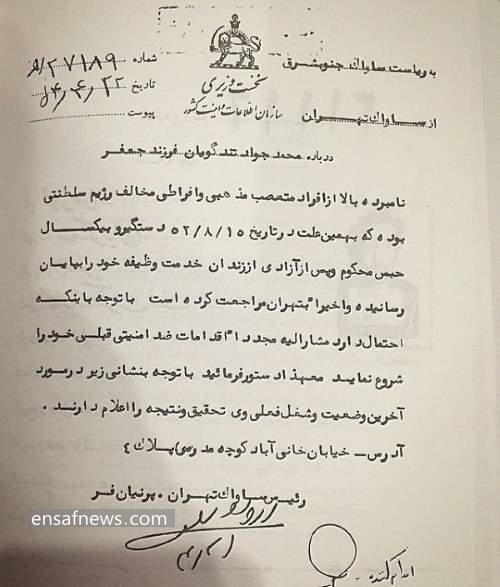 نخست وزیری
سازمان اطلاعات و امنیت کشور
شماره ۲۷۱۸۹
تاریخ
پیوست
به ریاست ساواك جنوبشرق
از ســاواك تهــران
درباره محمد جواد تندگویان فرزند جعفر
نامبرده بالا از افراد متعصب مذهبی و افراطی مخالف رژیم سلطنتی
بوده که بهمین علت در تاریخ ۵۲/۸/۱۵ دستگیر و بیکســال
حبس محکوم و پس از آزادی از زندان خدمت وظیفه خود را بپایان
رسانیده و اخیرا بتهران مراجعت کرده است با توجه باینکــه
احتمال دارد مشارالیه مجددا اقدامات ضد امنیتی قبلی خود را
شروع نماید معهذا دستور فرمائید با توجه بنشانی زیر در مورد
آخرین وضعیت و شغل فعلی وی تحقیق و نتیجه را اعلام دارنــد .
آدرس – خیابان خانی آباد کوچه مدرسی پلاك ٤
رئیس ســاواك تهــران . پرنیان فر
اقدام کننده
ensafnews.com